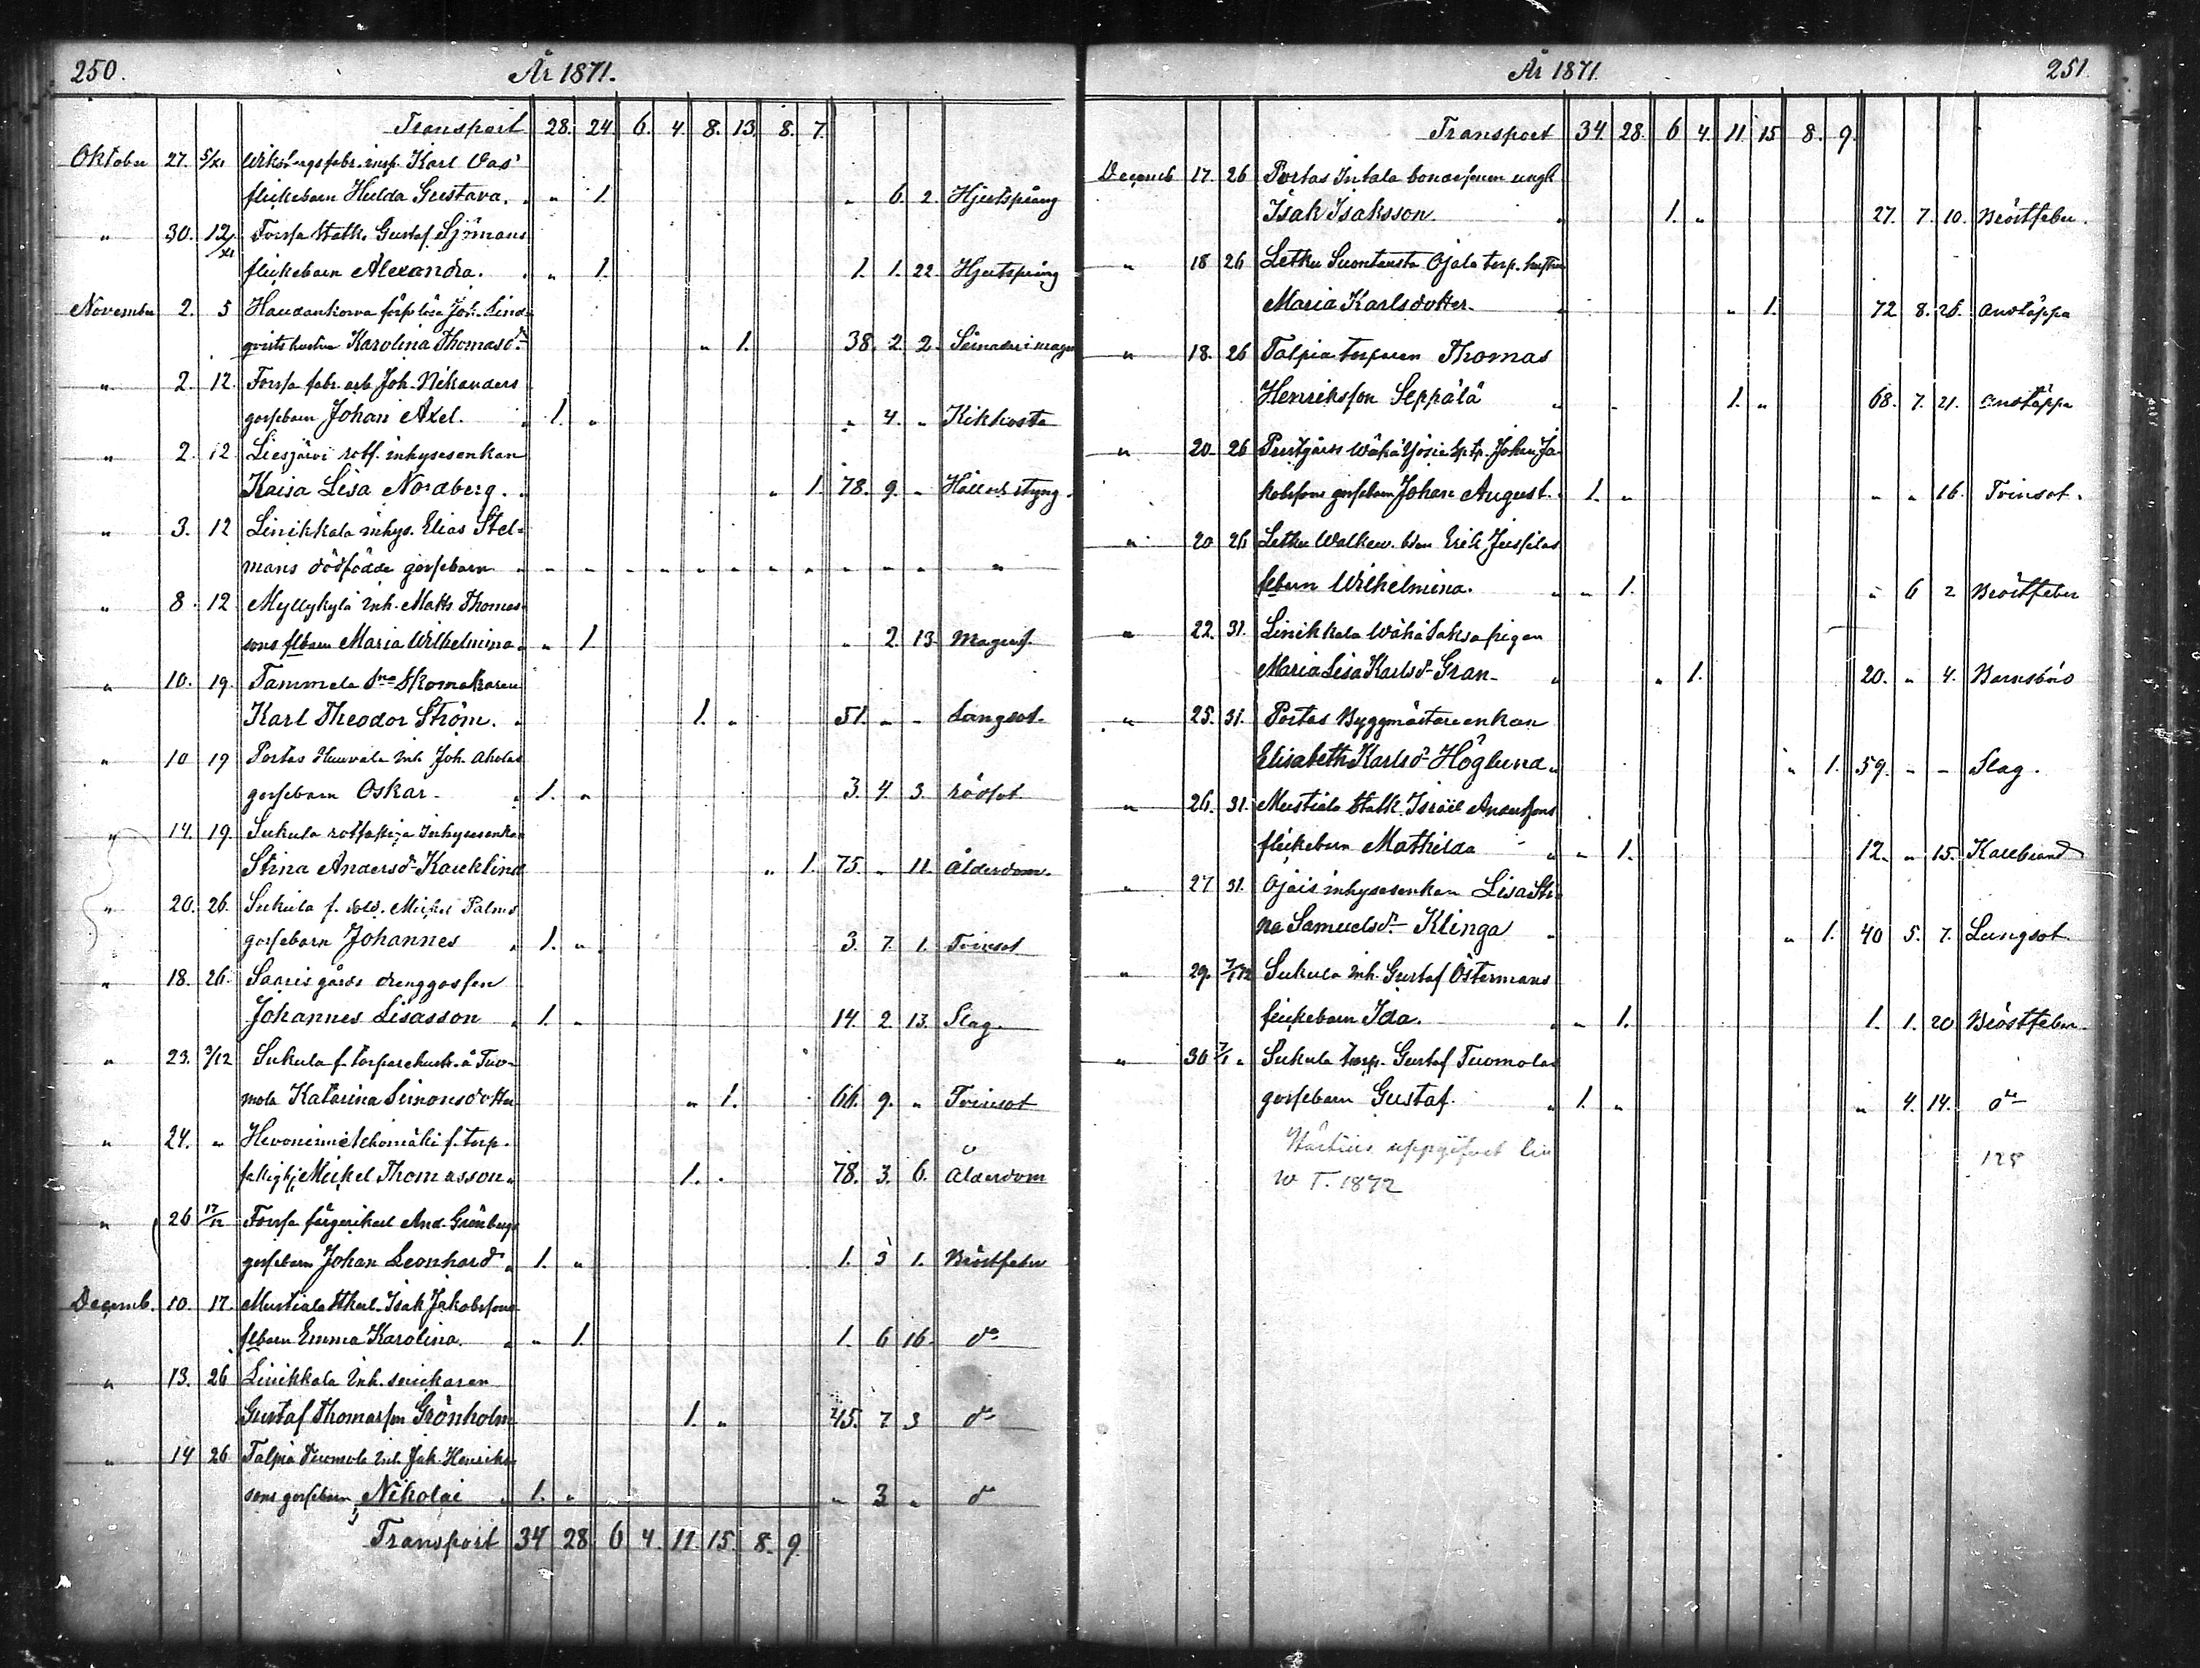 250.
År 1871.
Transport 28. 24. 6. 4. 8. 13. 8. 7.
Oktober 27. 5/XI Wiksbergs fabr. insp. Karl
flickebarn Hulda Gustava. " 1. " 6. 2. Hjertsprång
" 30. 12/XI Forssa Statk. Gustaf Sjömans
flickebarn Alexandra. " 1. 1. 1. 22. Hjertsprång
November 2. 5 Haudankorva Joh. Lind-
qvists hustru Karolina Thomasdr. " 1. 38. 2. 2.
" 2. 12. Forssa fabr. arb. Joh. Nikanders
gossebarn Johan Axel. 1. " " 4. " Kikhosta
" 2. 12 Liesjärvi rotf. inhysesenkan
Kaisa Lisa Nordberg. " 1. 78. 9. " Håll och styng.
" 3. 12 Linikkala inhys. Elias Stel-
mans dödfödde gossebarn " " " " " " " " " " " "
" 8. 12 Myllykylä Inh. Matts Thomas-
sons flbarn Maria Wilhelmina " 1. " 2. 13 Magsj.
" 10. 19. Tammela Skomakaren
Karl Theodor Ström. 1. " 51. " " Lungsot.
" 10 19 Portas Huuvala Inh. Joh. Aholas
gossebarn Oskar 1. " 3. 4. 3. rödsot
" 14. 19. Sukula Inhysesenkan
Stina Andersdr Kauklind " 1. 75. " 11. Ålderdom.
" 20. 26. Sukula f. sold. Mickel Palms
gossebarn Johannes 1. " 3. 7. 1. Tvinsot
" 18. 26. Saaris gårds drenggossen
Johannes Lisasson 1. " 14. 2. 13. Slag.
" 23. 3/12 Sukula f. torparehustr. å Tuo-
mola Katarina Simonsdotter " 1. 66. 9. " Tvinsot
" 24. " f. torp.
Mickel Thomasson 1. " 78. 3. 6. Ålderdom
" 26 17/12 Forssa färgerikarl And. Grönbergs
gossebarn Johan Leonhard 1. " 1. 3 1. Bröstfeber
Decemb. 10. 17. Mustiala Isak Jakobssons
flbarn Emma Karolina. " 1. 1. 6 16. do
" 13. 26 Linikkala Inh. snickaren
Gustaf Thomasson Grönholm 1. " 45. 7 3 do
" 14 26 Talpia Tuomola Inh. Jak. Henriks-
sons gossebarn Nikolai 1. " " 3 " do
Transport 34 28. 6 4. 11. 15. 8. 9.
År 1871.
251.
Transport 34. 28. 6 4. 11. 15 8. 9.
Decemb 17. 26 Portas Intala bonasonen ungk
Isak Isaksson. 1. " 27. 7. 10. Bröstfeber.
" 18 26 Letku Suontausta Ojala torp. hustru
Maria Karlsdotter. " 1. 72 8. 26. andtäppa
" 18. 26 Talpia torparen Thomas
Henriksson Seppälä 1. " 68. 7. 21. andtäppa
" 20. 26 Prestgårds Johan Ja-
kobssons gossebarn Johan August. 1. " " " 16. Tvinsot.
" 20 26 Letku Erik Jussilas
flbarn Wilhelmina. " 1. " 6 2 Bröstfeber
" 22. 31. Linikkala Wähä Saksa pigan
Maria Lisa Karlsdr Gran " 1. 20. " 4. Barnsbörd
" 25. 31. Portas Byggmästareenkan
Elisabeth Karlsdr Höglund. " 1. 59. " " Slag.
" 26. 31. Mustiala Statk. Israël Anderssons
flickebarn Mathilda " 1. 12. " 15. Kallbrand
" 27 31. Ojais inhysesenkan Lisa Sti-
na Samuelsdr Klinga " 1. 40 5. 7. Lungsot.
" 29. 7/1 72 Sukula Inh. Gustaf Östermans
flickebarn Ida. " 1. 1. 1. 20 Bröstfeber
" 30 7/1 " Sukula torp. Gustaf Tuomolas
gossebarn Gustaf. 1. " " 4. 14. do
uppgifvet 128
1872